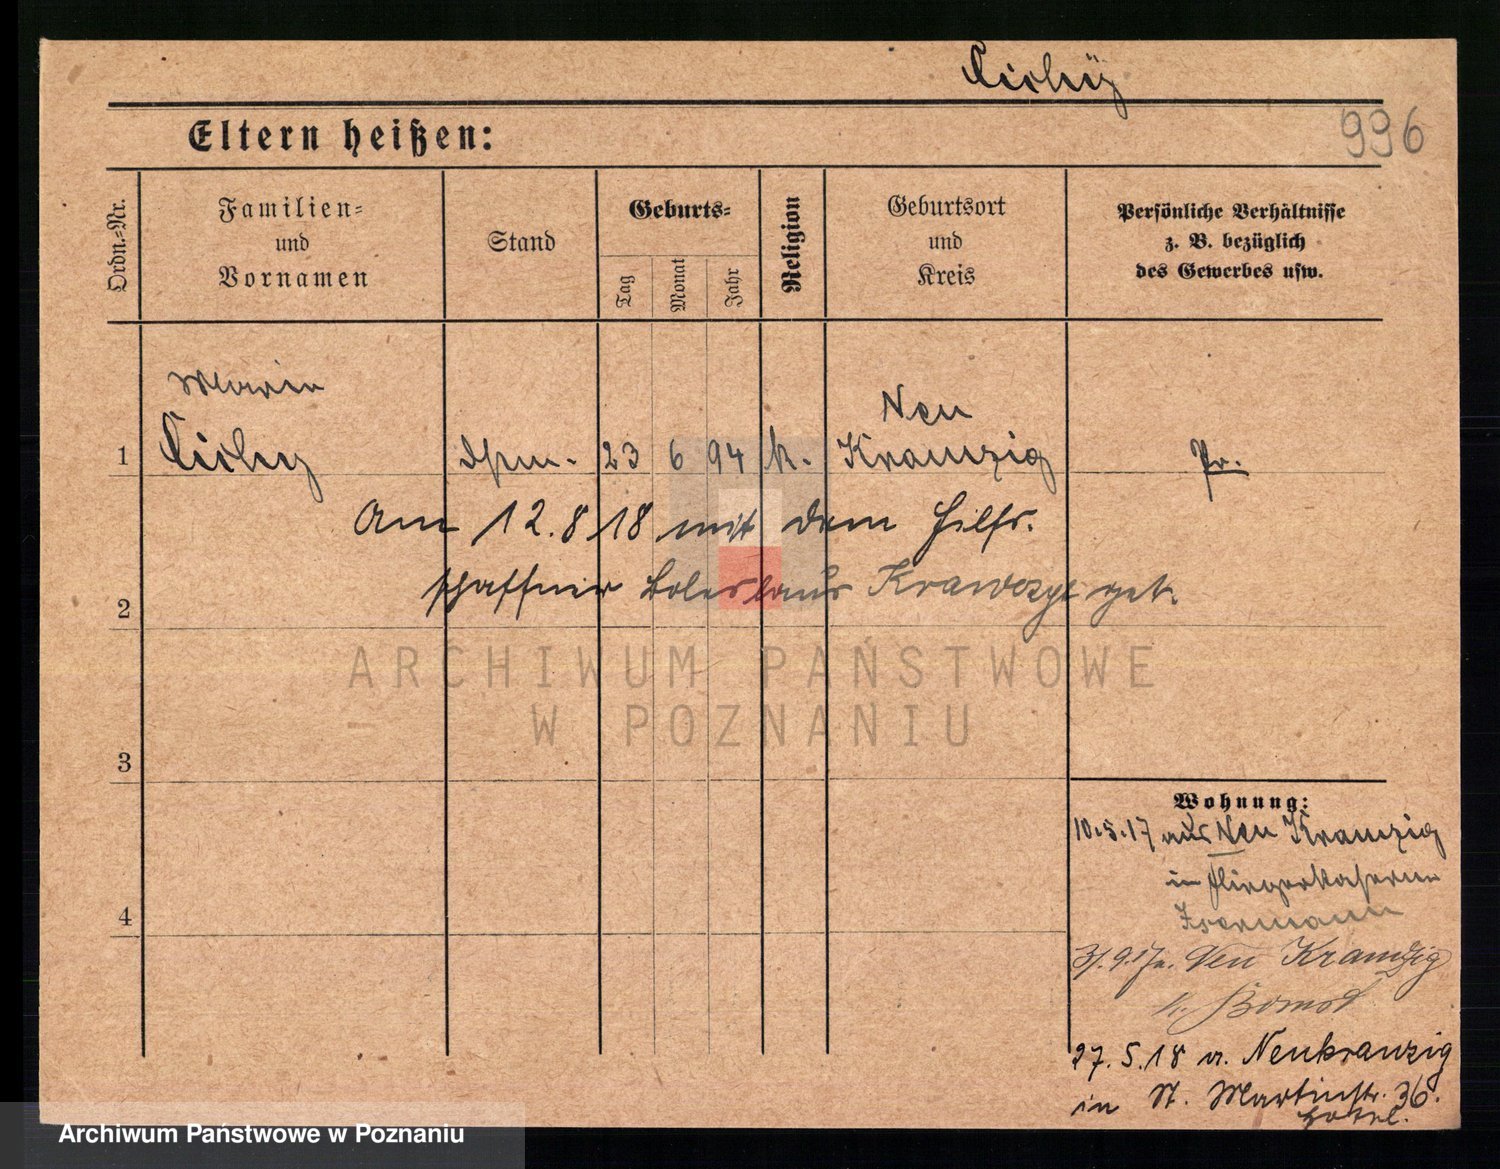 Cichy
996
Eltern heißen:
Ordn.-Nr.
Familien-
und
Vornamen
Stand
Geburts-
Tag
Monat
Jahr
Religion
Geburtsort
und
Kreis
Persönliche Verhältnisse
z. B. bezüglich
des Gewerbes usw.
Marie
1 Cichy 23 6 94 k. Neu Kramzig Pr.
Am 12.8 18 mit dem Hilfs.
2 schaffner Boleslaus get.
ARCHIWUM PAŃSTWOWE
W POZNANIU
3
Wohnung:
10.5.17 aus Neu Kramzig
in Fliegerkaserne
4
Neu Kramzig
Bomst
27.5.18 v. Neukranzig
in St. Martinstr. 36.
Hotel.
Archiwum Państwowe w Poznaniu